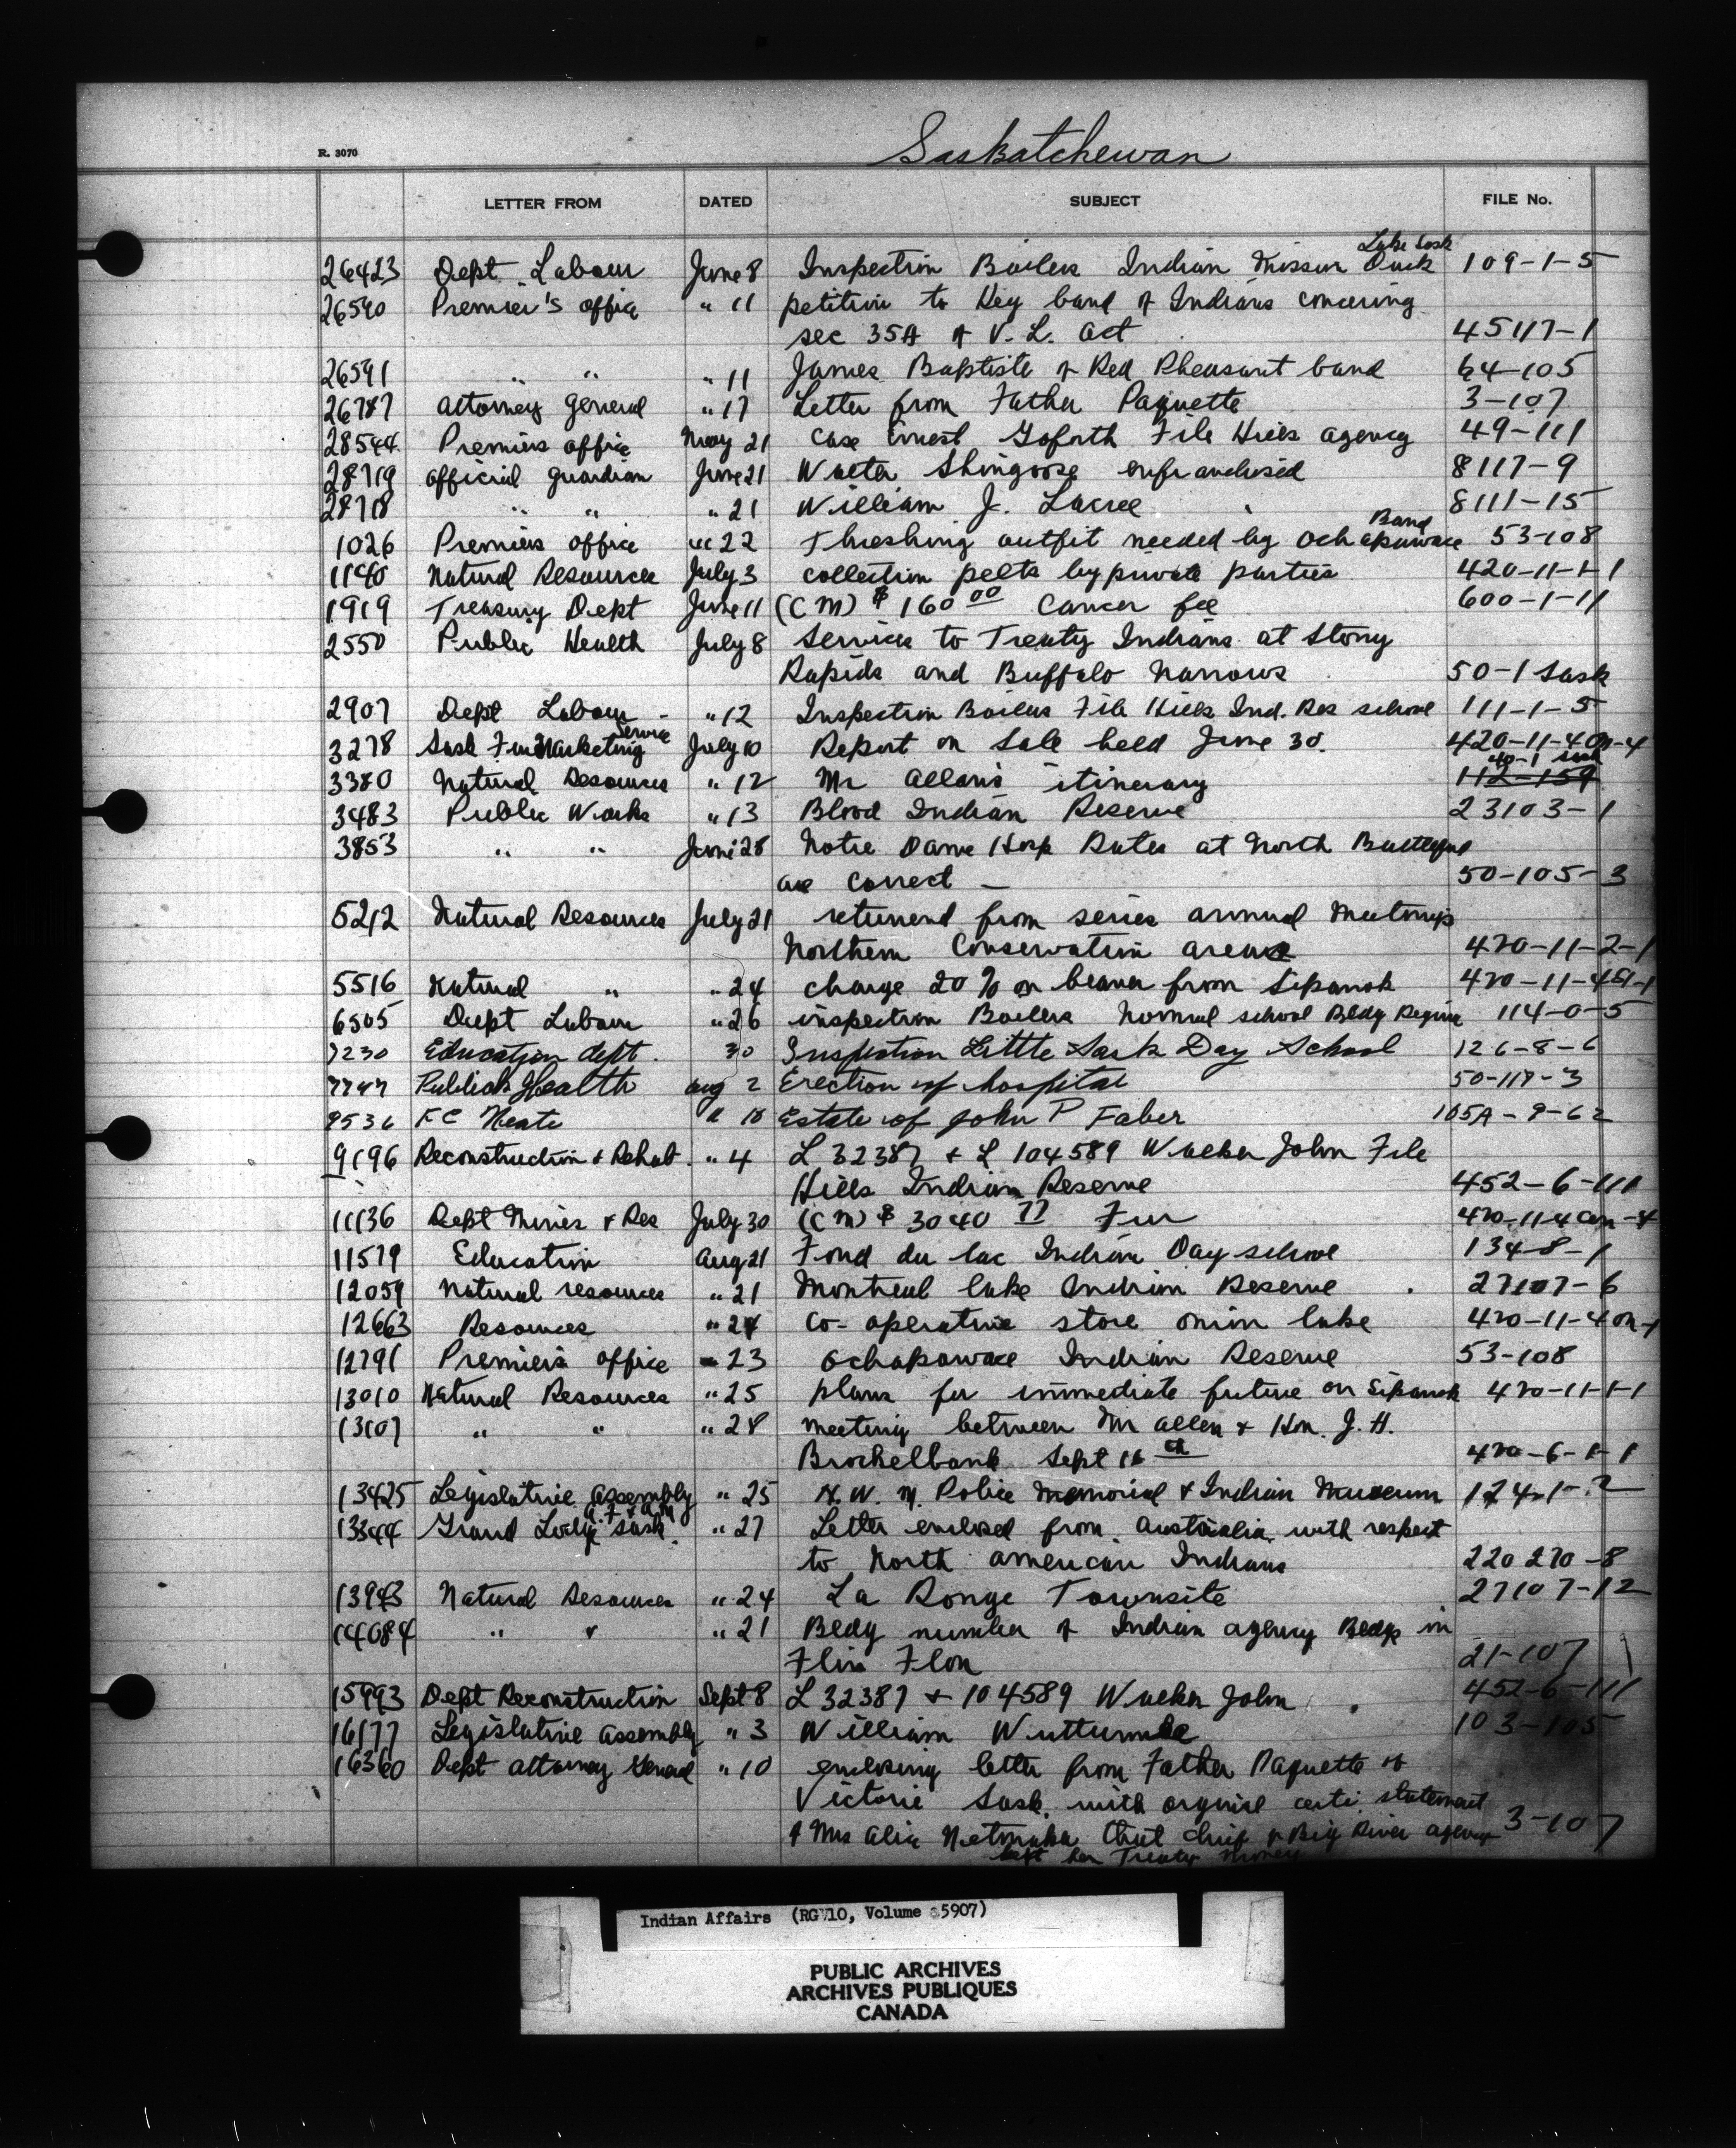 Saskatchewan
R. 3070
LETTER FROM DATED SUBJECT FILE No.
Lake Sask
26423 Dept Labour June 8 Inspection Boilers Indian Mission Duck 109-1-5
26590 Premier's office " 11 petition to Key band of Indians concering
sec 35A of V. L. Act 45117-1
26591 " " " 11 James Baptiste of Red Pheasant band 64-105
26787 Attorney General " 17 Letter from Father Paquette 3-107
28544 Premiers office May 21 Case Ernest Goforth File Hills Agency 49-111
28719 Official Guardian June 21 Walter Shingoose enfranchised 8117-9
28718 " " " 21 William J. Lacree 8111-15
Band
1026 Premiers office " 22 Threshing outfit needed by Ochapawace 53-108
1140 Natural Resources July 3 collection pelts by private parties 420-11-1-1
1919 Treasury Dept June 11 (CM) $ 160 00 Cancer fee 600-1-11
2550 Public Health July 8 Services to Treaty Indians at Stony
Rapids and Buffalo Narrows 50-1 Sask
2907 Dept Labour - " 12 Inspection Boilers File Hills Ind. Res school 111-1-5
Service
3278 Sask Fur Marketing July 10 Report on Sale held June 30. 420-11-4
40-1 Sask
3380 Natural Resources " 12 Mr Allans itinerary 112-159
3483 Public Works " 13 Blood Indian Reserve 23103-1
3853 " " June 28 Notre Dame Hosp Rates at North Battleford
are correct - 50-105-3
5212 Natural Resources July 21 returned from series annual meetings
Northern Conservation areas 420-11-2-1
5516 Natural " " 24 charge 20% on beaver from Sipanok 420-11-4
6505 Dept Labour " 26 inspection Boilers Normal school Bldg Regina 114-0-5
7230 Education dept. 30 Inspection Little Sask Day School 126-8-6
7747 Publick Health Aug 2 Erection of hospital 50-117-3
9536 F C Neate " 18 Estate of John P Faber 105A-9-62
9196 Reconstruction + Rehab. " 4 L 32387 + L 104589 Walker John File
Hills Indian Reserve 452-6-111
11136 Dept Mines + Res July 30 (CM) $ 3040 77 Fur 420-11-4
11579 Education Aug 21 Fond du lac Indian Day school 134-8-1
12059 Natural resources " 21 Montreal lake Indian Reserve 27107-6
12663 Resources " 24 Co-operative store onion lake 420-11-4
12791 Premiers office 23 Ochapawace Indian Reserve 53-108
13010 Natural Resources " 25 plans for immediate future on Sipanok 420-11-1-1
13107 " " " 28 meeting between Mr Allen + Hon. J. H.
Brockelbank Sept 16 th 420-6-1-1
13425 Legislative Assembly " 25 N. W. M. Police Memorial + Indian Museum 124-1-2
A. F. + A. M
13344 Grand Lodge Sask. " 27 Letter enclosed from Australia with respect
to North american Indians 220 270-8
13943 Natural Resources " 24 La Ronge Townsite 27107-12
14084 " " " 21 Bldg number of Indian agency Bldgs in
Flin Flon 21-107
15993 Dept Reconstruction Sept 8 L 32387 + 104589 Walker John 452-6-111
16177 Legislative Assembly " 3 William Wuttunee 103-105
16360 Dept Attorney General " 10 enclosing letter from Father Paquette of
Victoire Sask. with statement
of Mrs Alice that chief of Big River agency 3-107
kept her Treaty money
Indian Affairs (RG 10, Volume 5907)
PUBLIC ARCHIVES
ARCHIVES PUBLIQUES
CANADA